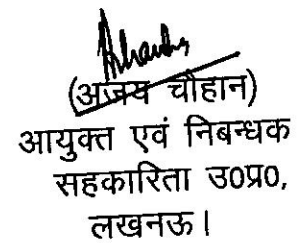 (अजय चौहान)
आयुक्त एवं निबन्धक
सहकारिता उ0प्र0,
लखनऊ।